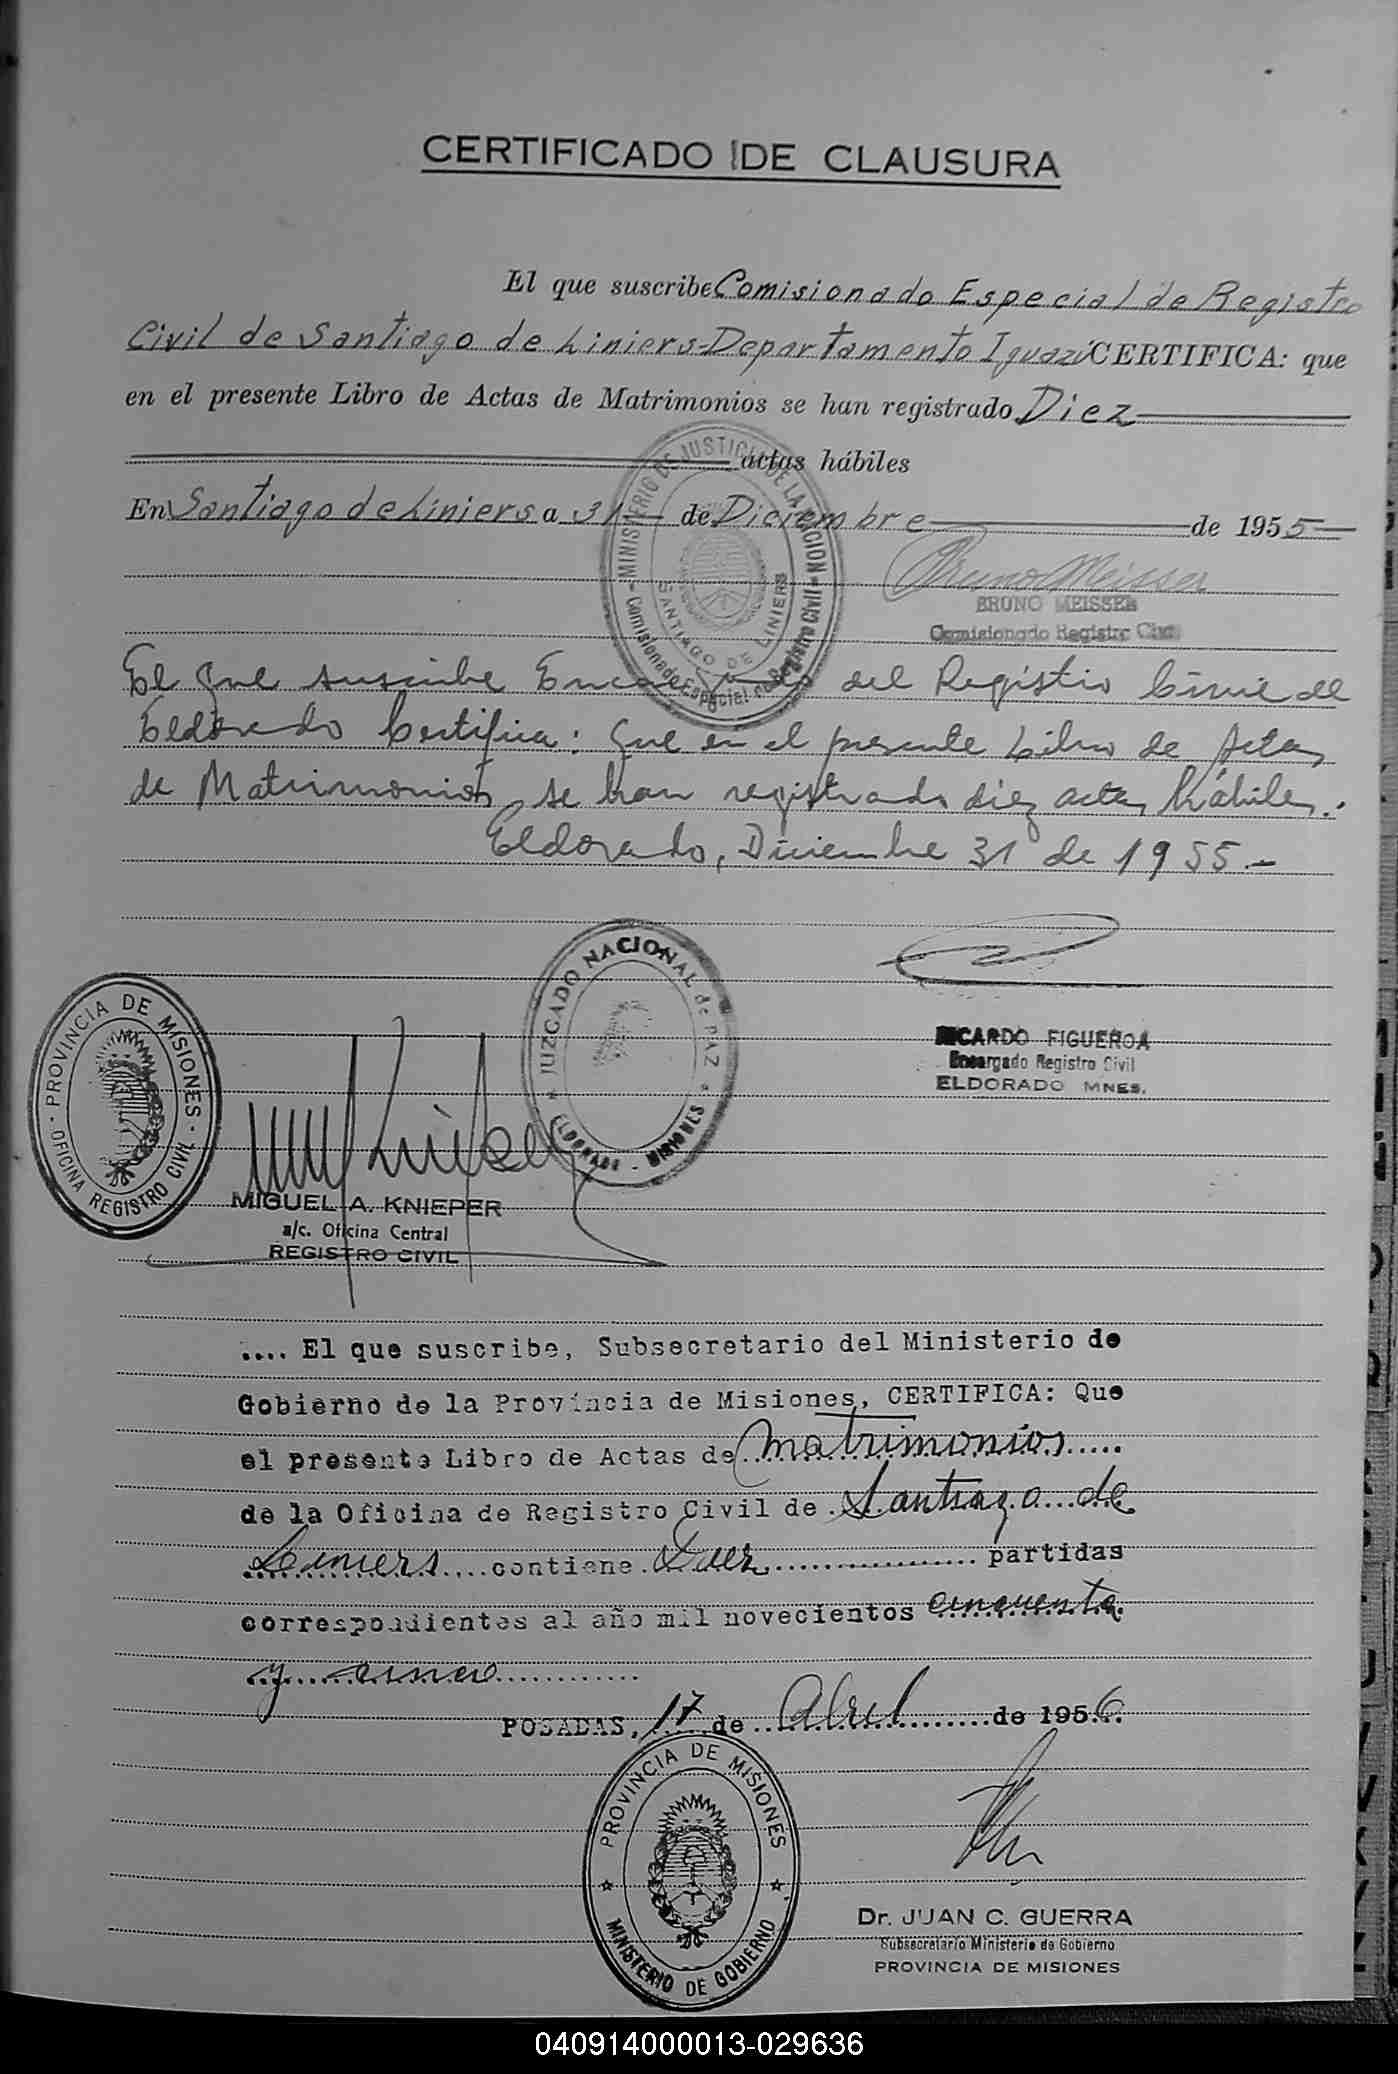 CERTIFICADO DE CLAUSURA
El que suscribe Comisionado Especial de Registro
Civil de Santiago de Liniers-Departamento Iguazú CERTIFICA: que
en el presente Libro de Actas de Matrimonios se han registrado Diez
actas hábiles
En Santiago de Liniers a 31 de Diciembre de 1955
MINISTERIO DE JUSTICIA DE LA NACION
Comisionado Especial de Registro Civil
SANTIAGO DE LINIERS
Bruno Meisser
BRUNO MEISSER
Comisionado Registro Civil
El que suscribe Encargado del Registro Civil de
Eldorado Certifica: que en el presente Libro de Actas
de Matrimonios, se han registrado diez actas hábiles.
Eldorado, Diciembre 31 de 1955.-
JUZGADO NACIONAL de PAZ
ELDORADO - MISIONES
RICARDO FIGUEROA
Encargado Registro Civil
ELDORADO MNES.
PROVINCIA DE MISIONES
OFICINA REGISTRO CIVIL
MIGUEL A. KNIEPER
a/c. Oficina Central
REGISTRO CIVIL
.... El que suscribe, Subsecretario del Ministerio de
Gobierno de la Provincia de Misiones, CERTIFICA: Que
el presente Libro de Actas de Matrimonios
de la Oficina de Registro Civil de Santiago de
Liniers contiene Diez partidas
correspondientes al año mil novecientos cincuenta
y cinco
POSADAS, 17 de Abril de 1956.
PROVINCIA DE MISIONES
MINISTERIO DE GOBIERNO
Dr. JUAN C. GUERRA
Subsecretario Ministerio de Gobierno
PROVINCIA DE MISIONES
040914000013-029636